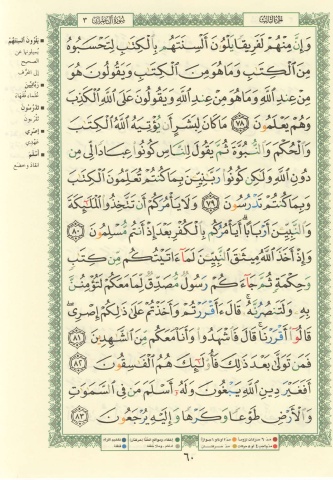 الجزء الثالث
سورة آل عمران ٣
وَإِنَّ مِنْهُمْ لَفَرِيقًا يَلْوُۥنَ أَلْسِنَتَهُم بِٱلْكِتَٰبِ لِتَحْسَبُوهُ
مِنَ ٱلْكِتَٰبِ وَمَا هُوَ مِنَ ٱلْكِتَٰبِ وَيَقُولُونَ هُوَ
مِنْ عِندِ ٱللَّهِ وَمَا هُوَ مِنْ عِندِ ٱللَّهِ وَيَقُولُونَ عَلَى ٱللَّهِ ٱلْكَذِبَ
وَهُمْ يَعْلَمُونَ ٧٨ مَا كَانَ لِبَشَرٍ أَن يُؤْتِيَهُ ٱللَّهُ ٱلْكِتَٰبَ
وَٱلْحُكْمَ وَٱلنُّبُوَّةَ ثُمَّ يَقُولَ لِلنَّاسِ كُونُوا۟ عِبَادًا لِّى مِن
دُونِ ٱللَّهِ وَلَٰكِن كُونُوا۟ رَبَّٰنِيِّۦنَ بِمَا كُنتُمْ تُعَلِّمُونَ ٱلْكِتَٰبَ
وَبِمَا كُنتُمْ تَدْرُسُونَ ٧٩ وَلَا يَأْمُرَكُمْ أَن تَتَّخِذُوا۟ ٱلْمَلَٰٓئِكَةَ
وَٱلنَّبِيِّۦنَ أَرْبَابًا أَيَأْمُرُكُم بِٱلْكُفْرِ بَعْدَ إِذْ أَنتُم مُّسْلِمُونَ ٨٠
وَإِذْ أَخَذَ ٱللَّهُ مِيثَٰقَ ٱلنَّبِيِّۦنَ لَمَآ ءَاتَيْتُكُم مِّن كِتَٰبٍ
وَحِكْمَةٍ ثُمَّ جَآءَكُمْ رَسُولٌ مُّصَدِّقٌ لِّمَا مَعَكُمْ لَتُؤْمِنُنَّ
بِهِۦ وَلَتَنصُرُنَّهُۥ قَالَ ءَأَقْرَرْتُمْ وَأَخَذْتُمْ عَلَىٰ ذَٰلِكُمْ إِصْرِى
قَالُوٓا۟ أَقْرَرْنَا قَالَ فَٱشْهَدُوا۟ وَأَنَا۠ مَعَكُم مِّنَ ٱلشَّٰهِدِينَ ٨١
فَمَن تَوَلَّىٰ بَعْدَ ذَٰلِكَ فَأُو۟لَٰٓئِكَ هُمُ ٱلْفَٰسِقُونَ ٨٢
أَفَغَيْرَ دِينِ ٱللَّهِ يَبْغُونَ وَلَهُۥٓ أَسْلَمَ مَن فِى ٱلسَّمَٰوَٰتِ
وَٱلْأَرْضِ طَوْعًا وَكَرْهًا وَإِلَيْهِ يُرْجَعُونَ ٨٣
يلوون ألسنتهم
يميلونها عن
الصحيح
إلى المحرف
ربانيين
علماء فقهاء
تدرسون
تقرءون
إصري
عهدي
أسلم
انقاد وخضع
٦٠